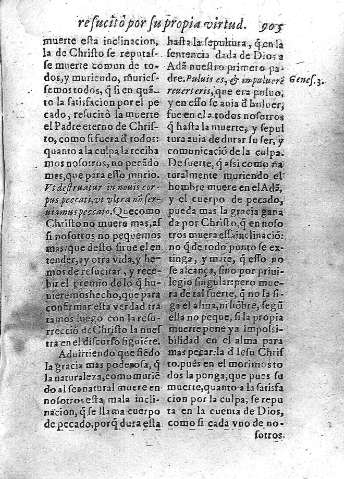 resucitò por su propia virtud. 905
muerte esta inclinacion,
la de Christo se reputas-
se muerte comun de to-
dos, y muriendo, muries-
semos todos, q̃ si en quã-
to la satisfacion por el pe
cado, resucitò la muerte
el Padre eterno de Chris-
to, como si fuera d̃ todos:
quanto a la culpa la reciba
mos nosotros, no pecãdo
mas, que para esto murio.
Vt destruatur in nouis cor
pus peccati, vt vltra nõ ser
uiamus peccato. Que como
Christo no muere mas, as
si nosotros no pequemos
mas: que desto sirue el en
tender, ay otra vida, y he-
mos de resucitar, y rece-
bir el premio de lo q̃ hu-
uieremos hecho, que para
confirmar esta verdad tra
tamos luego con la resu-
rrecciõ de Christo la nues
tra en el discurso siguiẽte.
Aduirtiendo que siẽdo
la gracia mas poderosa, q̃
la naturaleza, como muriẽ
do al ser natural muere en
nosotros esta mala incli-
nacion, q̃ se llama cuerpo
de pecado, porq̃ dura esta
hasta la sepultura, q̃ en la
sentencia dada de Dios a
Adã nuestro primero pa-
dre. Puluis es, & in puluerẽ
reuerteris, que era poluo,
y en esso se auia d̃ boluer,
fue en el a todos nosotros
q̃ hasta la muerte, y sepul
tura auia de durar su ser, y
comunicaciõ de la culpa.
De suerte, q̃ assi como na
turalmente muriendo el
hombre muere en el Adã,
y el cuerpo de pecado,
pueda mas la gracia gana
da por Christo, q̃ en noso
tros muera essa inclinaciõ:
no q̃ de todo punto se ex
tinga, y mate, q̃ esso no
se alcança, sino por priui-
legio singular: pero muera
de tal suerte, q̃ no la si-
ga el alma, ni sobre, segũ
ella no peque, si la propia
muerte pone ya impossi-
bilidad en el alma para
mas pecar: la d̃ Iesu Chris
to, pues en el morimos to
dos la ponga, que pues su
muerte, quanto a la satisfa
cion por la culpa, se repu
ta en la cuenta de Dios,
como si cada vno de no-
sotros
Genes. 3.